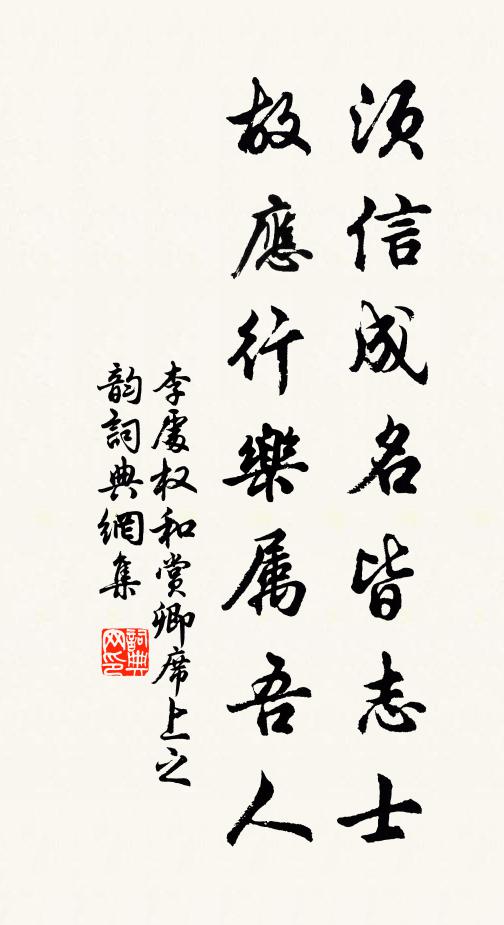 须信成名皆志士
故應行樂属吾人
李處权和赏卿席上之
韵詞典網集
詞典
网印